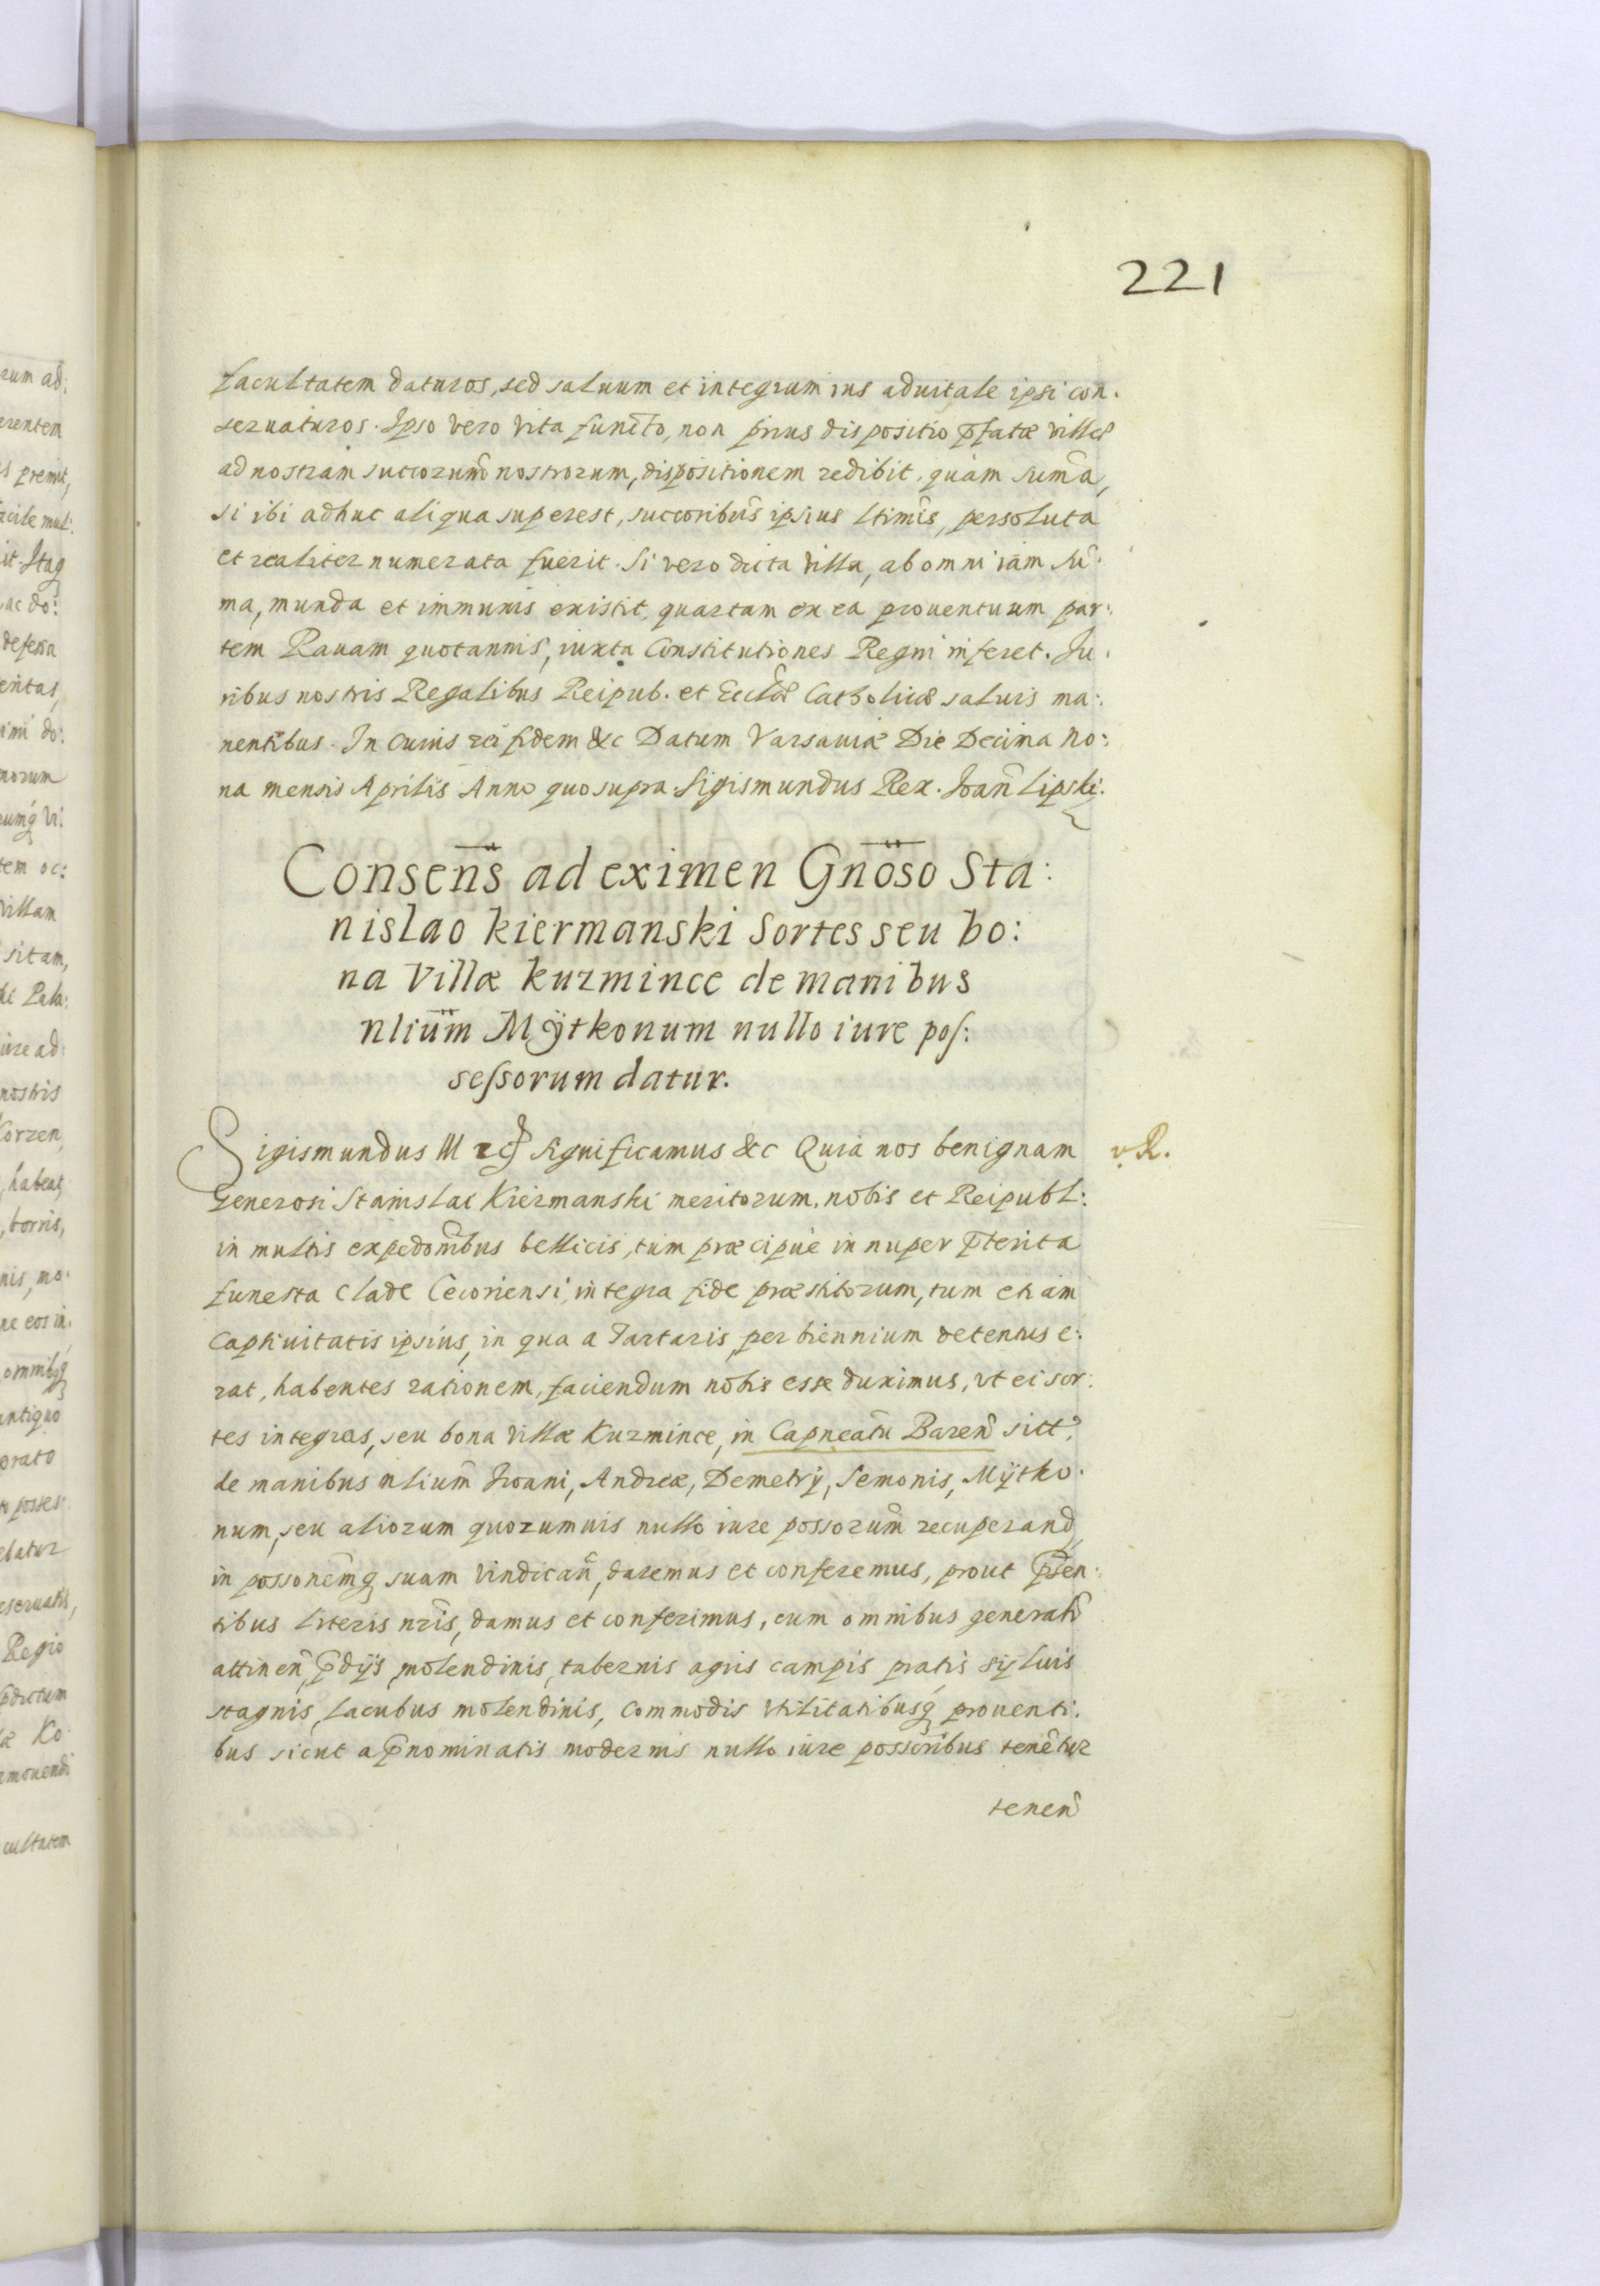 221
facultatem daturos, sed saluum et integrum ius aduitale ipsi con:
seruaturos. Ipso vero vita functo, non prius dispositio p̃fatæ villæ
ad nostram succorum̃ nostrorum, dispositionem redibit, quam sum̃a,
si ibi adhuc aliqua superest, succoribus̃ ipsius ltimis̃, persoluta
et realiter numerata fuerit. Si vero dicta villa, ab omni iam sũ:
ma, munda et immunis existit, quartam ex ea prouentuum par:
tem Rauam quotannis, iuxta Constitutiones Regni inferet. Ju:
ribus nostris Regalibus Reipub. et Eccl̃æ Catholicæ saluis ma:
nentibus. In cuius rei fidem &c Datum Varsauiæ Die Decima No:
na mensis Aprilis Anno quo supra Sigismundus Rex. Joañ Lipski.
Conseñs ad eximen Gnõso Sta:
nislao kiermanski Sortes seu bo:
na Villæ kuzmince de manibus
nliũm Mÿtkonum nullo iure pos:
sessorum datur.
Sigismundus III significamus &c Quia nos benignam
v. R.
Generosi Stanislai Kiermanski meritorum, nobis et Reipubl:
in multis expedoñibus bellicis, tum præcipue in nuper p̃terita
funesta clade Cecoriensi, integra fide præstitorum, tum etiam
captiuitatis ipsius, in qua a Tartaris, per biennium detentus e:
rat, habentes rationem, faciendum nobis esse duximus, vt ei sor:
tes integras, seu bona villæ Kuzmince, in Capneatũ Bareñ sitt:
de manibus nlium̃ Iwani, Andreæ, Demetrÿ, Semonis, Mÿtko:
num, seu aliorum quorumuis nullo iure possorum̃ recuperand
in possonem̃q suam vindicañ, daremus et conferemus, prout p̃sen:
tibus literis nris̃, damus et conferimus, cum omnibus generalr̃
attineñ, p̃dijs, molendinis, tabernis agris campis pratis syluis
stagnis, lacubus molendinis, commodis vtilitatibusq prouenti:
bus sicut a p̃nominatis modernis nullo iure possoribus̃ tenẽtur
teneñ